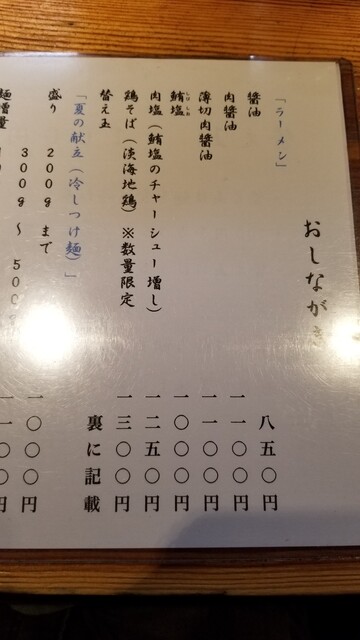 おしながき
「ラーメン」
醤油 八五〇円
肉醤油 一一〇〇円
薄切肉醤油 一一〇〇円
鮪塩 一〇〇〇円
肉塩（鮪塩のチャーシュー増し） 一二五〇円
鶏そば（淡海地鶏）※数量限定 一三〇〇円
替え玉 裏に記載
「夏の献立（冷しつけ麺）」
盛り 200g まで 一〇〇〇円
麺増量 300g 〜 500g 一一〇〇円